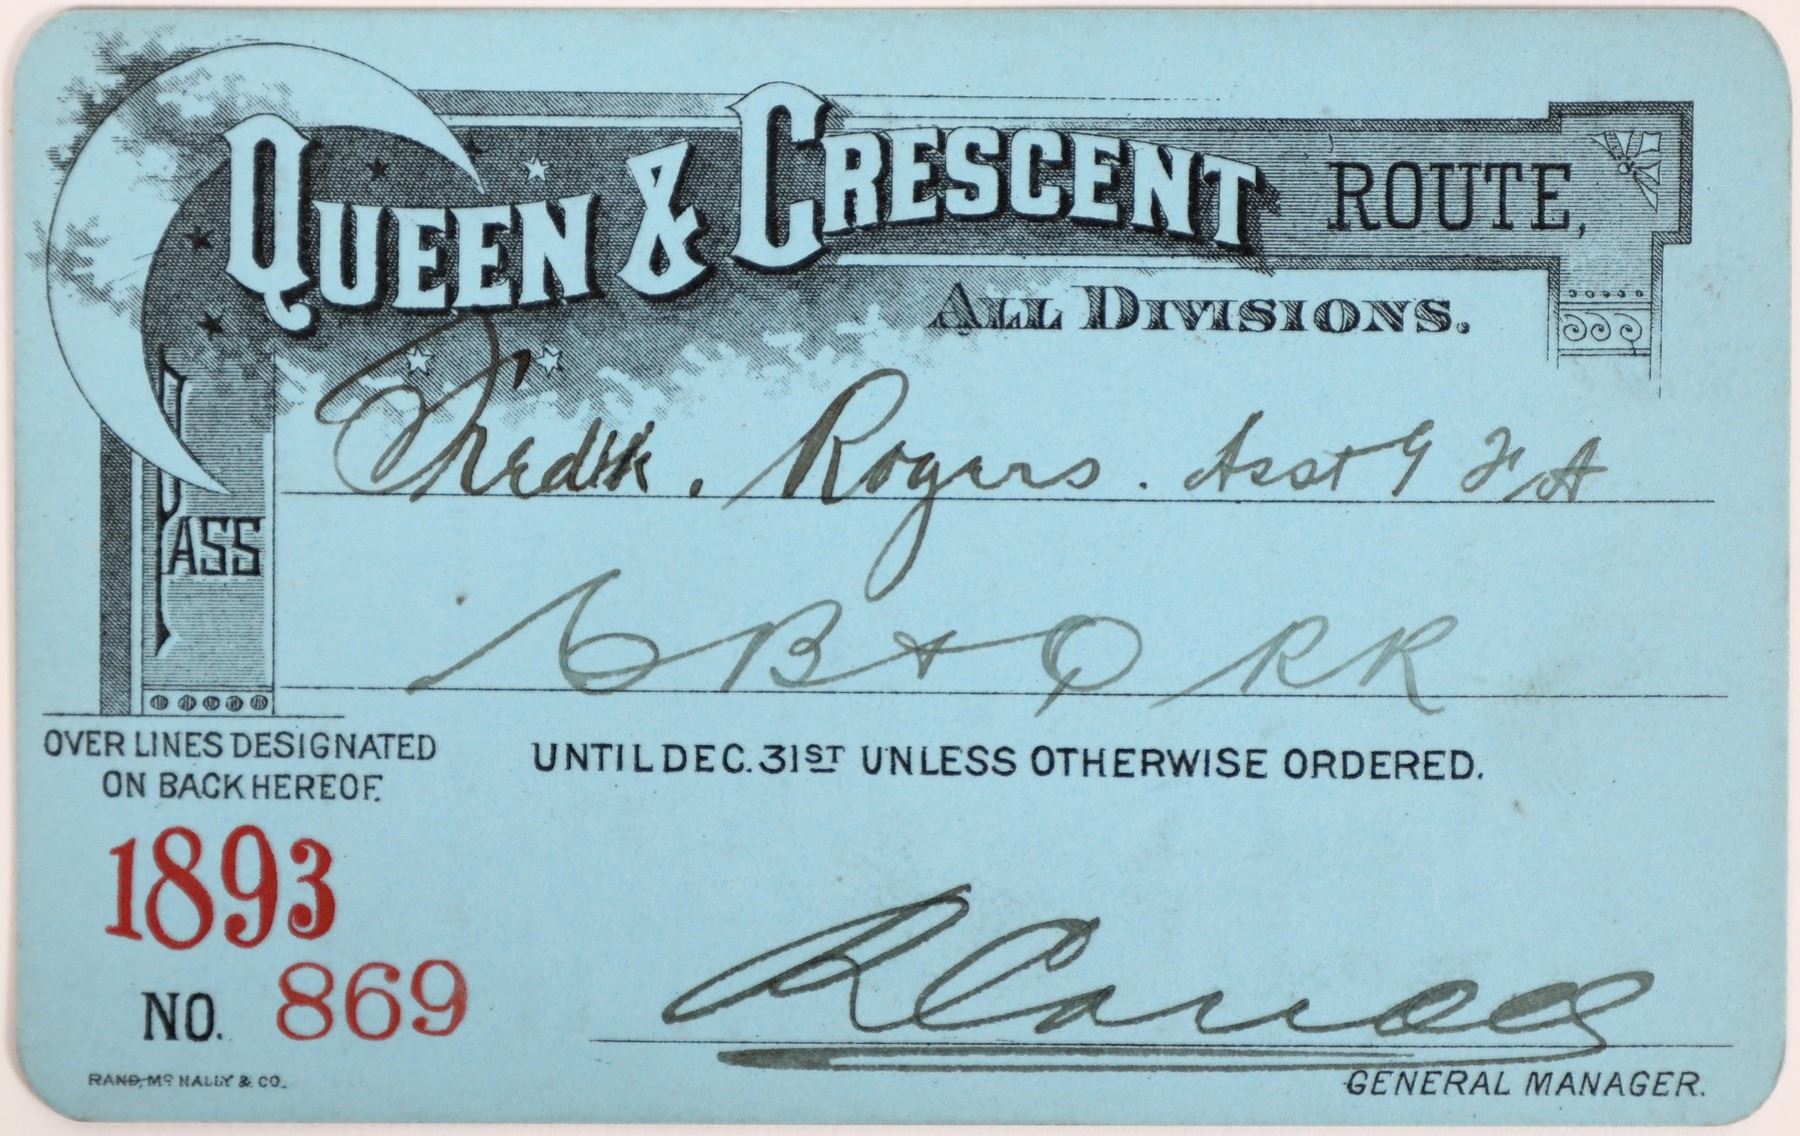 QUEEN & CRESCENT ROUTE,
ALL DIVISIONS.
PASS
Fredk. Rogers. Asst G F A
C B & Q RR
OVER LINES DESIGNATED
ON BACK HEREOF.
UNTIL DEC. 31ST UNLESS OTHERWISE ORDERED.
1893
NO. 869
R Carroll
GENERAL MANAGER.
RAND, MCNALLY & CO.